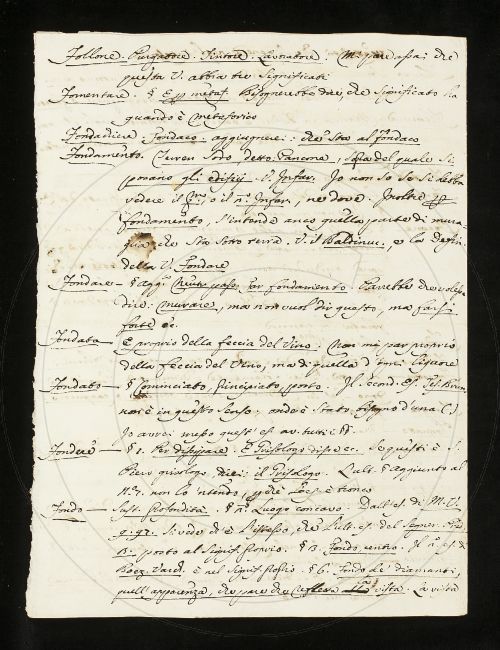 Follone. Purgatore. Tintore. Lavoratore. Mi pare assai che
questa V. abbia tre significati
Fomentare. § E p metaf. Bisognerebbe dire, che significato ha
quando è metaforico
Fondachiere. Fondaco. aggiugnerei: che sta al fondaco
Fondamento. Terren sodo detto Pancone, sopra del quale si
pongano gli edifizj. V. Infar. Io non so se si debba
vedere il o il n. Infar, ne dove. Inoltre
fondamento, s'intende anco quella parte di mura-
glia che sta sotto terra. V. il Baldinuc. e la Defin.
della V. Fondare
Fondare — § aggi. per fondamento. Parrebbe che volesse
dire: murare, ma non vuol dir questo, ma farsi
forte &c.
Fondato — È proprio della feccia del Vino. Non mi par proprio
della feccia del Vino, ma di quella d'ogni liquore
Fondato — § Cominciato, Principiato, posto. Il second. Es. Tes. Brun.
non è in questo senso. andò è stato bisogno d'una ( )
Io avrei messo quest'es. av. tutti i §.
Fondere — § 1. Per dissipare. È Grisologo disse &c. Se questi è S.
Pier grisologo direi: il Grisologo. L'ult. § aggiunto al
n. 7. non lo 'ntendo, l'es. è tronco
Fondo — Sust. Profondità. § 7. Luogo concavo. Dall'es. di M. V.
9. 97. si vede che è l'istesso, che l'ult. es. del Segner. Pred.
B. posto al signif. proprio. § 13. Fondo, centro. Il n. es. di
Boez. Varch. è nel signif. proprio. § 6. Fondo de' diamanti,
quell'apparenza, che pare che rifletta vista. La vista